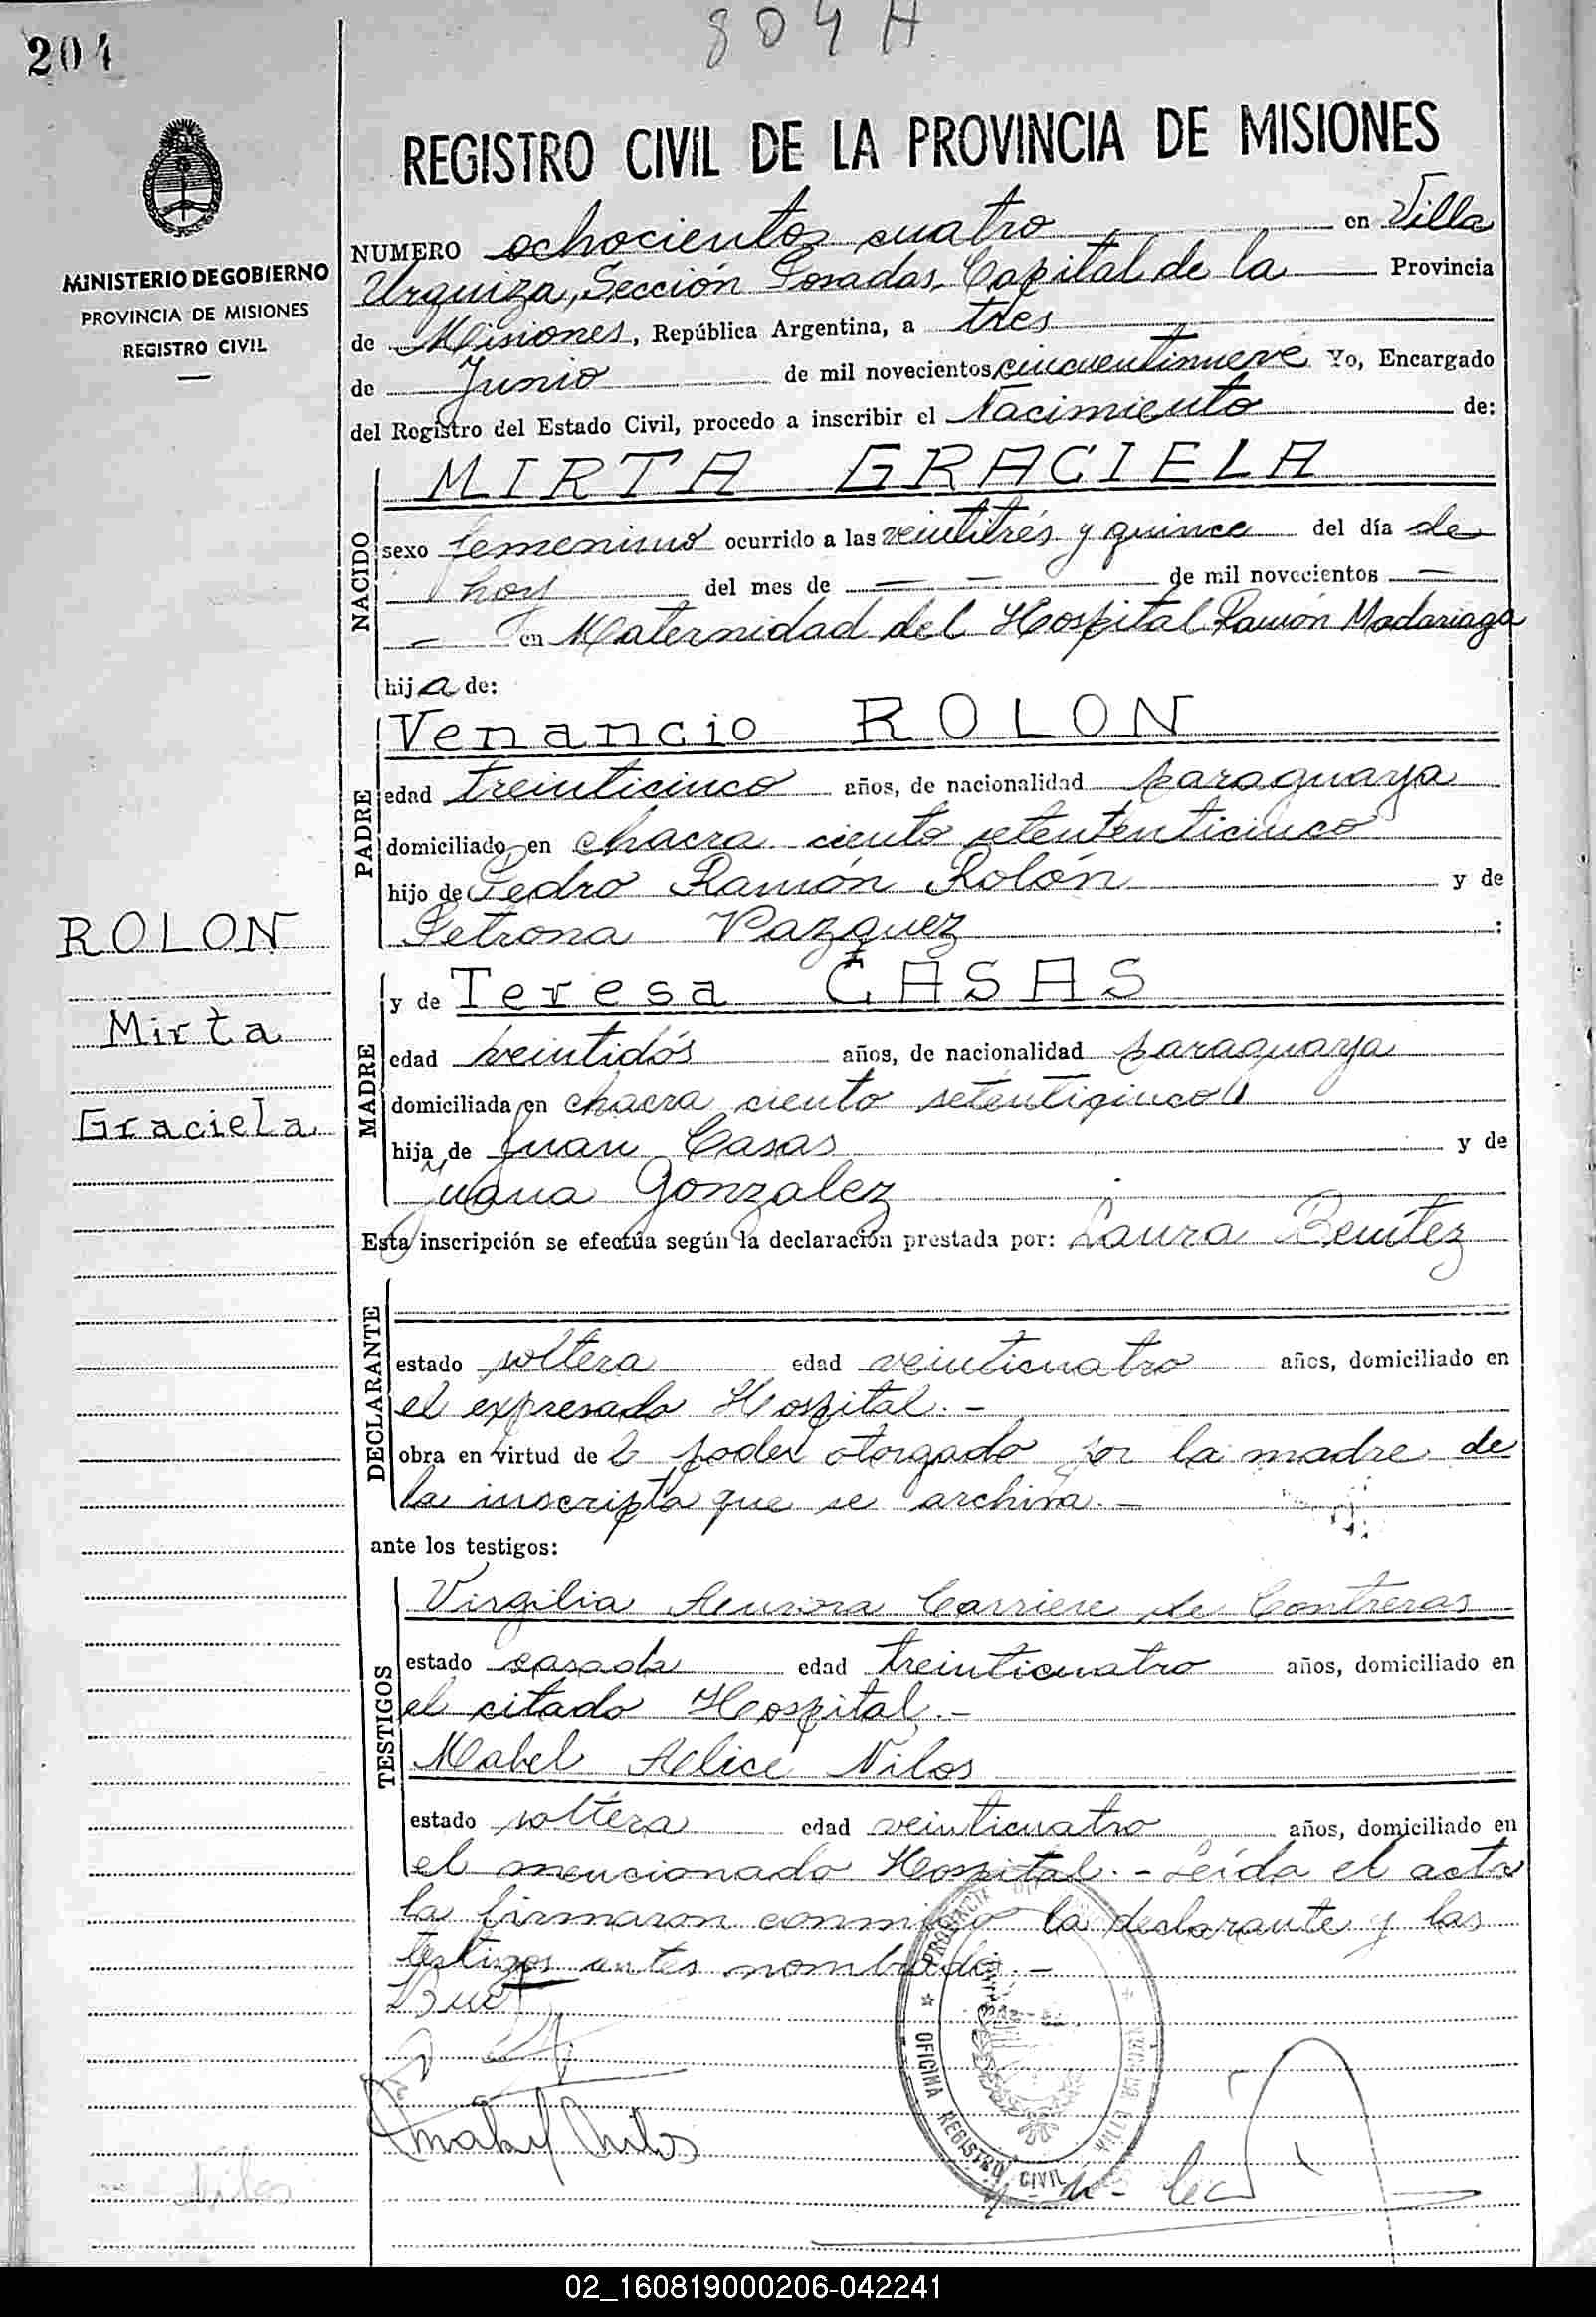 804 A
204
MINISTERIO DE GOBIERNO
PROVINCIA DE MISIONES
REGISTRO CIVIL
REGISTRO CIVIL DE LA PROVINCIA DE MISIONES
NUMERO ochocientos cuatro en Villa
Urquiza, Sección Posadas, Capital de la Provincia
de Misiones, República Argentina, a tres
de Junio de mil novecientos cincuentinueve Yo, Encargado
del Registro del Estado Civil, procedo a inscribir el Nacimiento de:
NACIDO
MIRTA GRACIELA
sexo femenino ocurrido a las veintitrés y quince del día de
hoy del mes de — — de mil novecientos —
— en Maternidad del Hospital Ramón Madariaga
hija de:
PADRE
Venancio ROLON
edad treinticinco años, de nacionalidad paraguaya
domiciliado en chacra ciento setententicinco
hijo de Pedro Ramón Rolón y de
Petrona Vazquez :
ROLON
Mirta
Graciela
MADRE
y de Teresa CASAS
edad veintidós años, de nacionalidad paraguaya
domiciliada en chacra ciento setenticinco
hija de Juan Casas y de
Juana Gonzalez
Esta inscripción se efectúa según la declaración prestada por: Laura Benítez
DECLARANTE
estado soltera edad veinticuatro años, domiciliado en
el expresado Hospital.-
obra en virtud de poder otorgado por la madre de
la inscripta que se archiva.-
ante los testigos:
TESTIGOS
Virgilia Aurora Carriere de Contreras
estado casada edad treinticuatro años, domiciliado en
el citado Hospital.-
Mabel Alice Nilos
estado soltera edad veinticuatro años, domiciliado en
el mencionado Hospital.- Leída el acta
la firmaron conmigo la declarante y las
testigos antes nombradas.-
PROVINCIA
OFICINA REGISTRO CIVIL VILLA
02_160819000206-042241